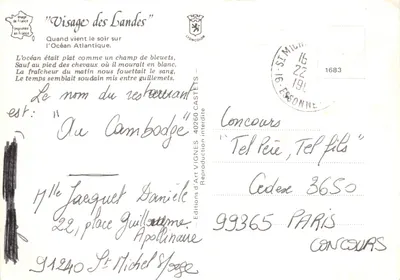 "Visage des Landes"
Quand vient le soir sur
l'Océan Atlantique.
L'océan était plat comme un champ de bleuets.
Sauf au pied des chevaux où il mourait en blanc.
La fraîcheur du matin nous fouettait le sang.
Le temps semblait soudain mis entre guillemets.
Le nom du restaurant
est : "Au Cambodge"
Mlle Jacquet Danièle
22, place Guillaume
Apollinaire
91240 St Michel s/orge
Editions d'Art VIGNES - 40260 CASTETS -
Reproduction interdite
91 - ST MICHEL
16
22
19
ESSONNE
1683
Concours
"Tel Père, Tel fils"
Cedex 3650
99365 PARIS
CONCOURS